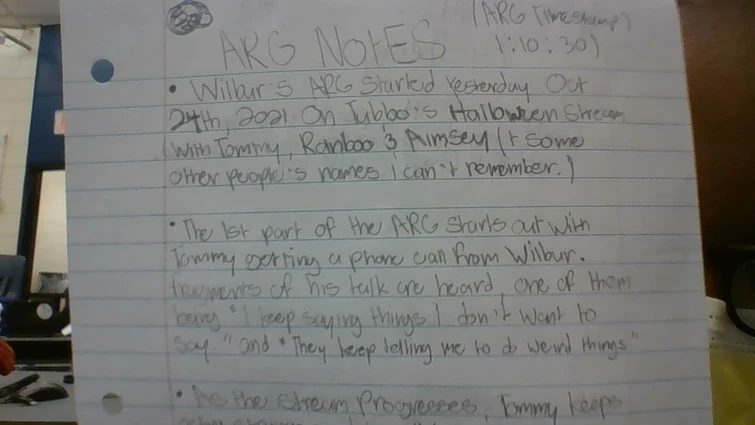 (ARG Timestamp)
1:10:30)
ARG NOtES
• Wilbur's ARG Started Yesterday Oct
24th, 2021 On Tubbo's Halloween Stream
(With Tommy, Ranboo & Aimsey (+ some
other people's names I can't remember.)
• The 1st part of the ARG starts out with
Tommy getting a phone call from Wilbur.
fragments of his talk are heard, one of them
being "I keep saying things I don't want to
say." and "They keep telling me to do weird things"
• As the stream Progresses, Tommy keeps